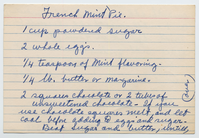 French Mint Pie.
1 cup powdered sugar
2 whole eggs.
1/4 teaspoons of Mint flavoring.
1/4 lb. butter or margarine.
2 squares chocolate or 2 tubes of
unsweetened chocolate - If you
use chocolate squares melt, and let
cool before adding to eggs and sugar.
Beat sugar and butter, until
(over)